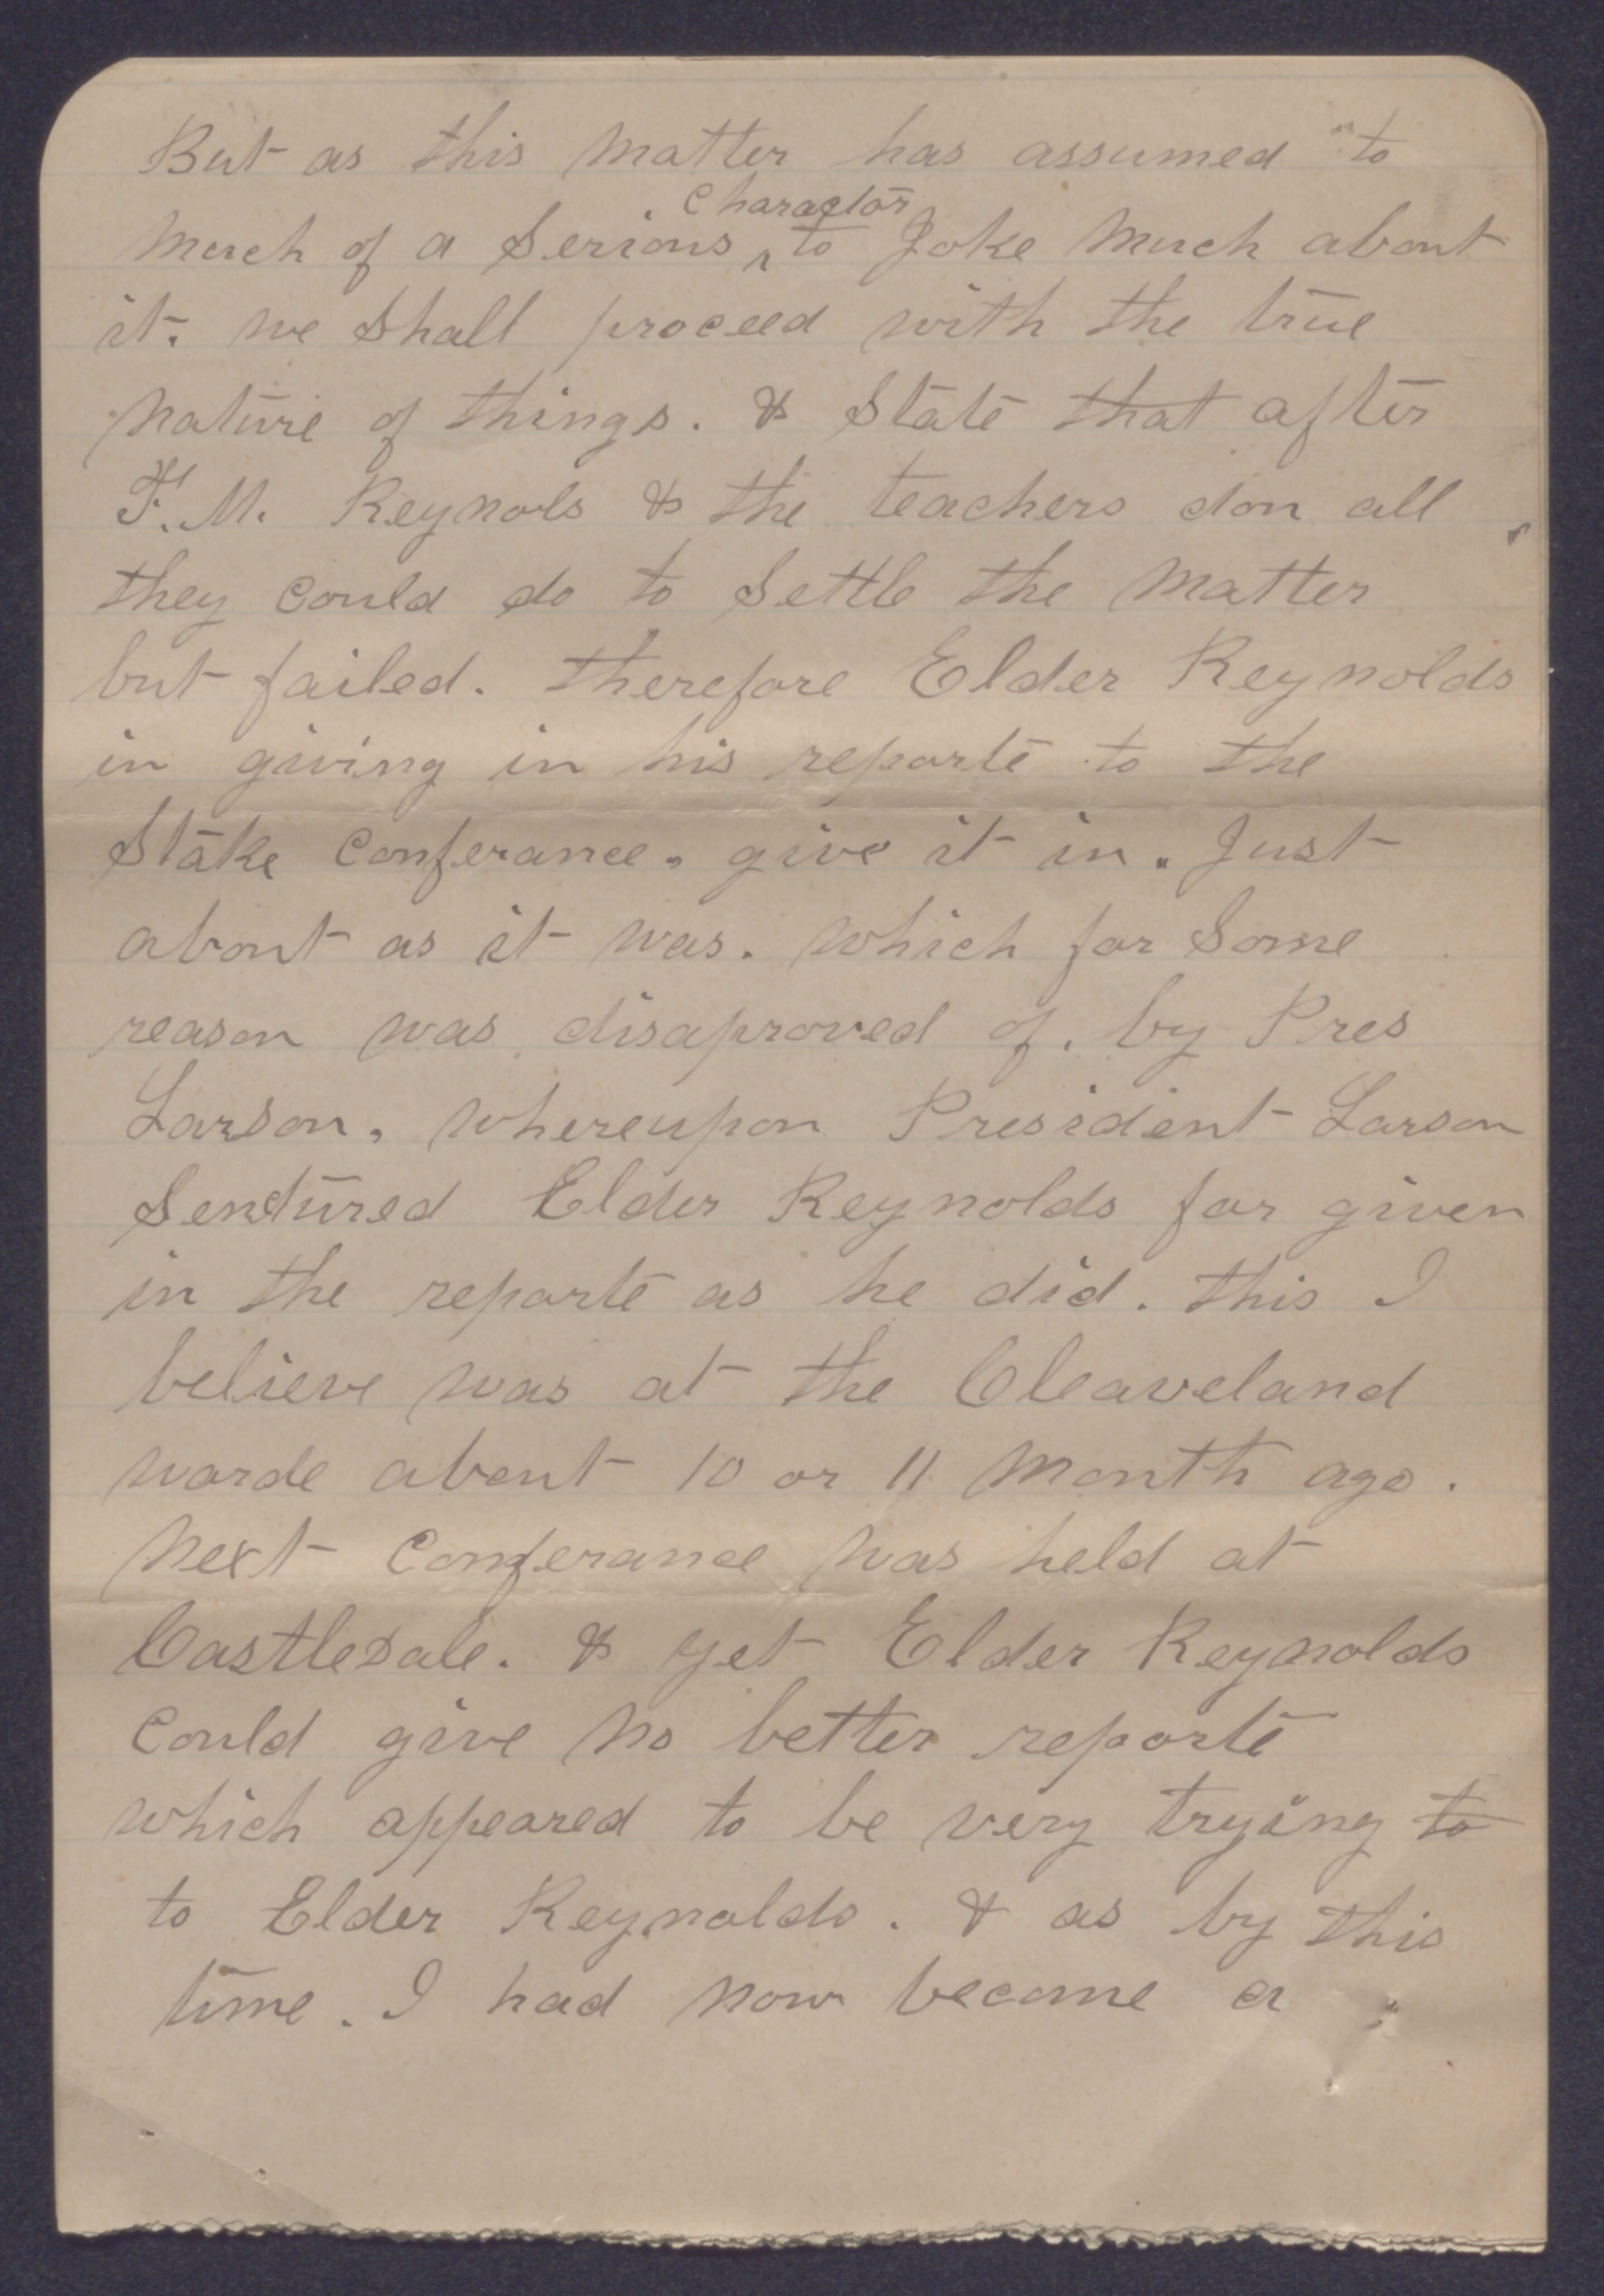 But as this matter has assumed to
much of a Serious ^Charactor to Joke much about
it. we Shall proceed with the true
nature of things. & State that after
F. M. Reynols & the teachers don all
they could do to Settle the matter
but failed. therefore Elder Reynolds
in giving in his reporte to the
Stake Conferance. give it in. Just
about as it was. which for Some
reason was disaproved of. by Pres
Larson. whereupon President Larson
Sentured Elder Reynolds for given
in the reporte as he did. this I
believe was at the Cleaveland
warde about 10 or 11 month ago.
Next Conferance was held at
CastleDale. & yet Elder Reynolds
Could give no better reporte
which appeared to be very trying to
to Elder Reynolds. & as by this
time. I had now become a